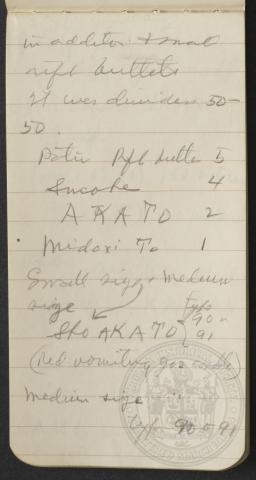 in addition to small
rifle bullets
It was divided 50-
50.
Ratio Rifl bullets 5
Smoke 4
AKATO 2
Midori To 1
Small size & medium
size type
Sho AKATO 90 or
91
(Red vomiting gas candle)
Medium size
type 90 or 91